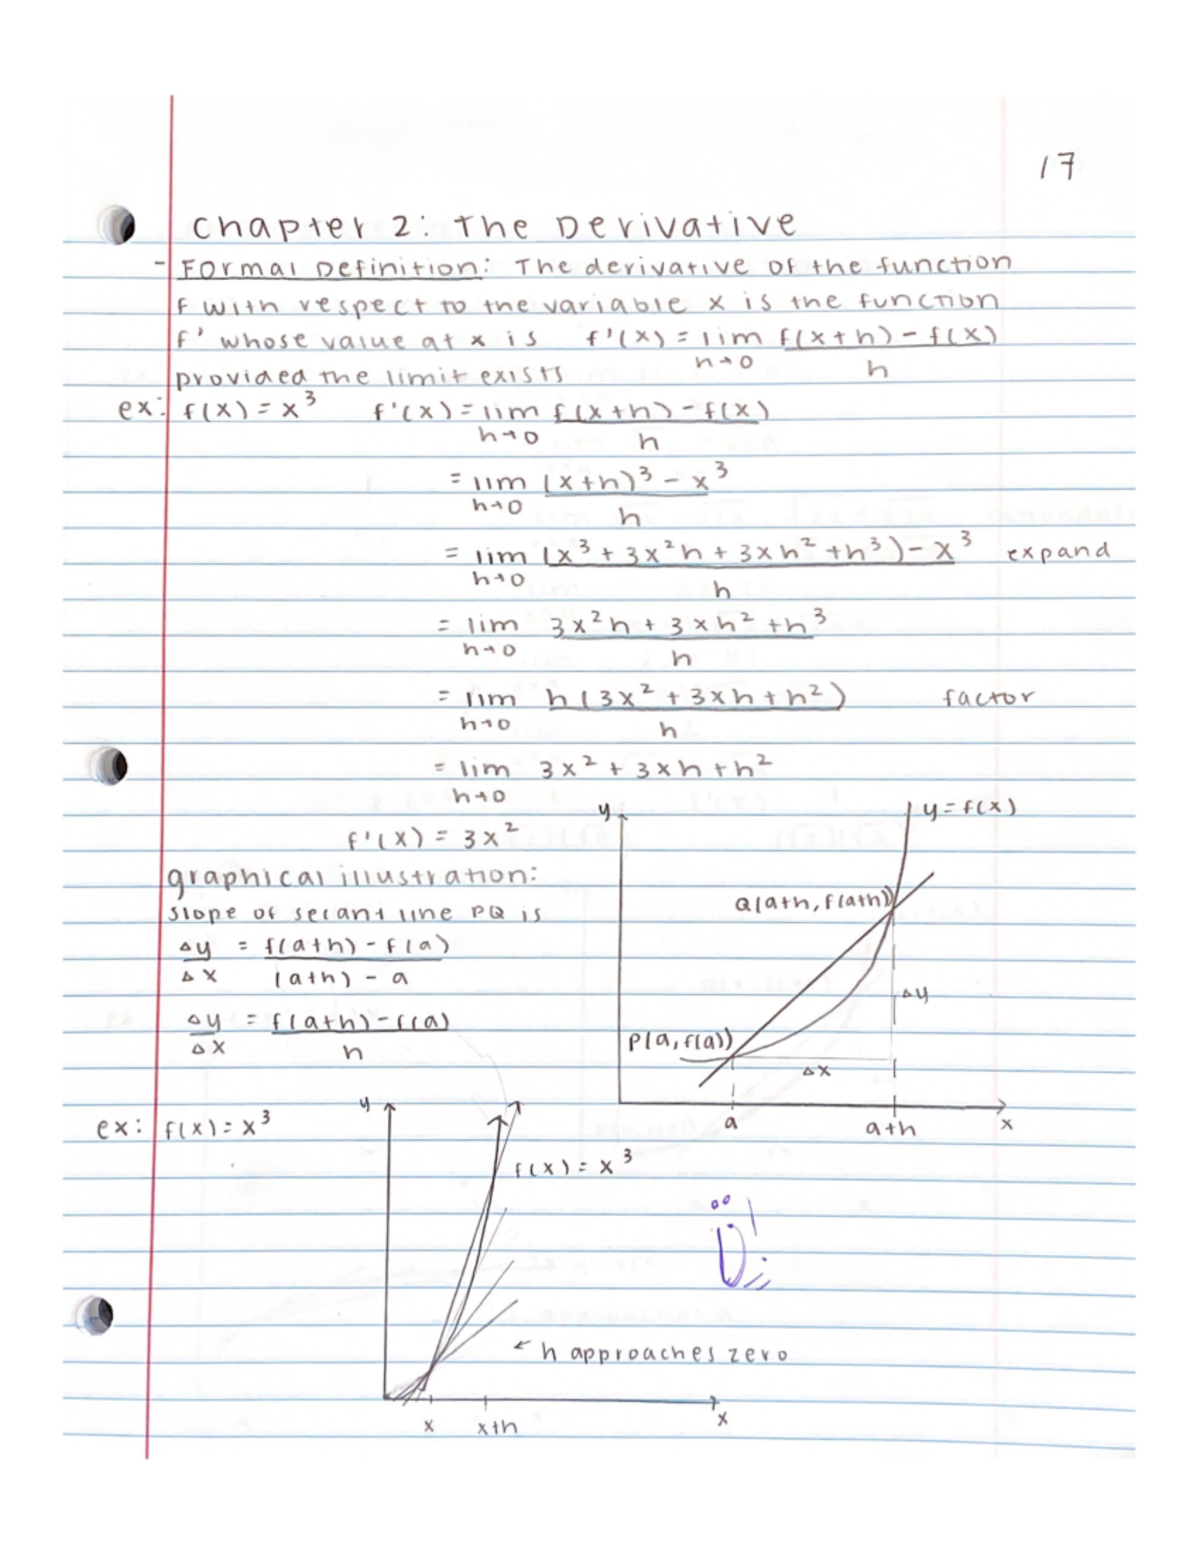 17
Chapter 2: The Derivative
- Formal Definition: The derivative of the function
f with respect to the variable x is the function
f' whose value at x is f'(x) = lim h→0 f(x+h) - f(x) / h
provided the limit exists
ex: f(x) = x³ f'(x) = lim h→0 f(x+h) - f(x) / h
= lim h→0 (x+h)³ - x³ / h
= lim h→0 (x³ + 3x²h + 3xh² + h³) - x³ / h expand
= lim h→0 3x²h + 3xh² + h³ / h
= lim h→0 h(3x² + 3xh + h²) / h factor
= lim h→0 3x² + 3xh + h²
f'(x) = 3x²
graphical illustration:
slope of secant line PQ is
Δy/Δx = f(a+h) - f(a) / (a+h) - a
Δy/Δx = f(a+h) - f(a) / h
y
y = f(x)
Q(a+h, f(a+h))
Δy
P(a, f(a))
Δx
a
a+h
x
ex: f(x) = x³
y
f(x) = x³
← h approaches zero
x
x+h
x